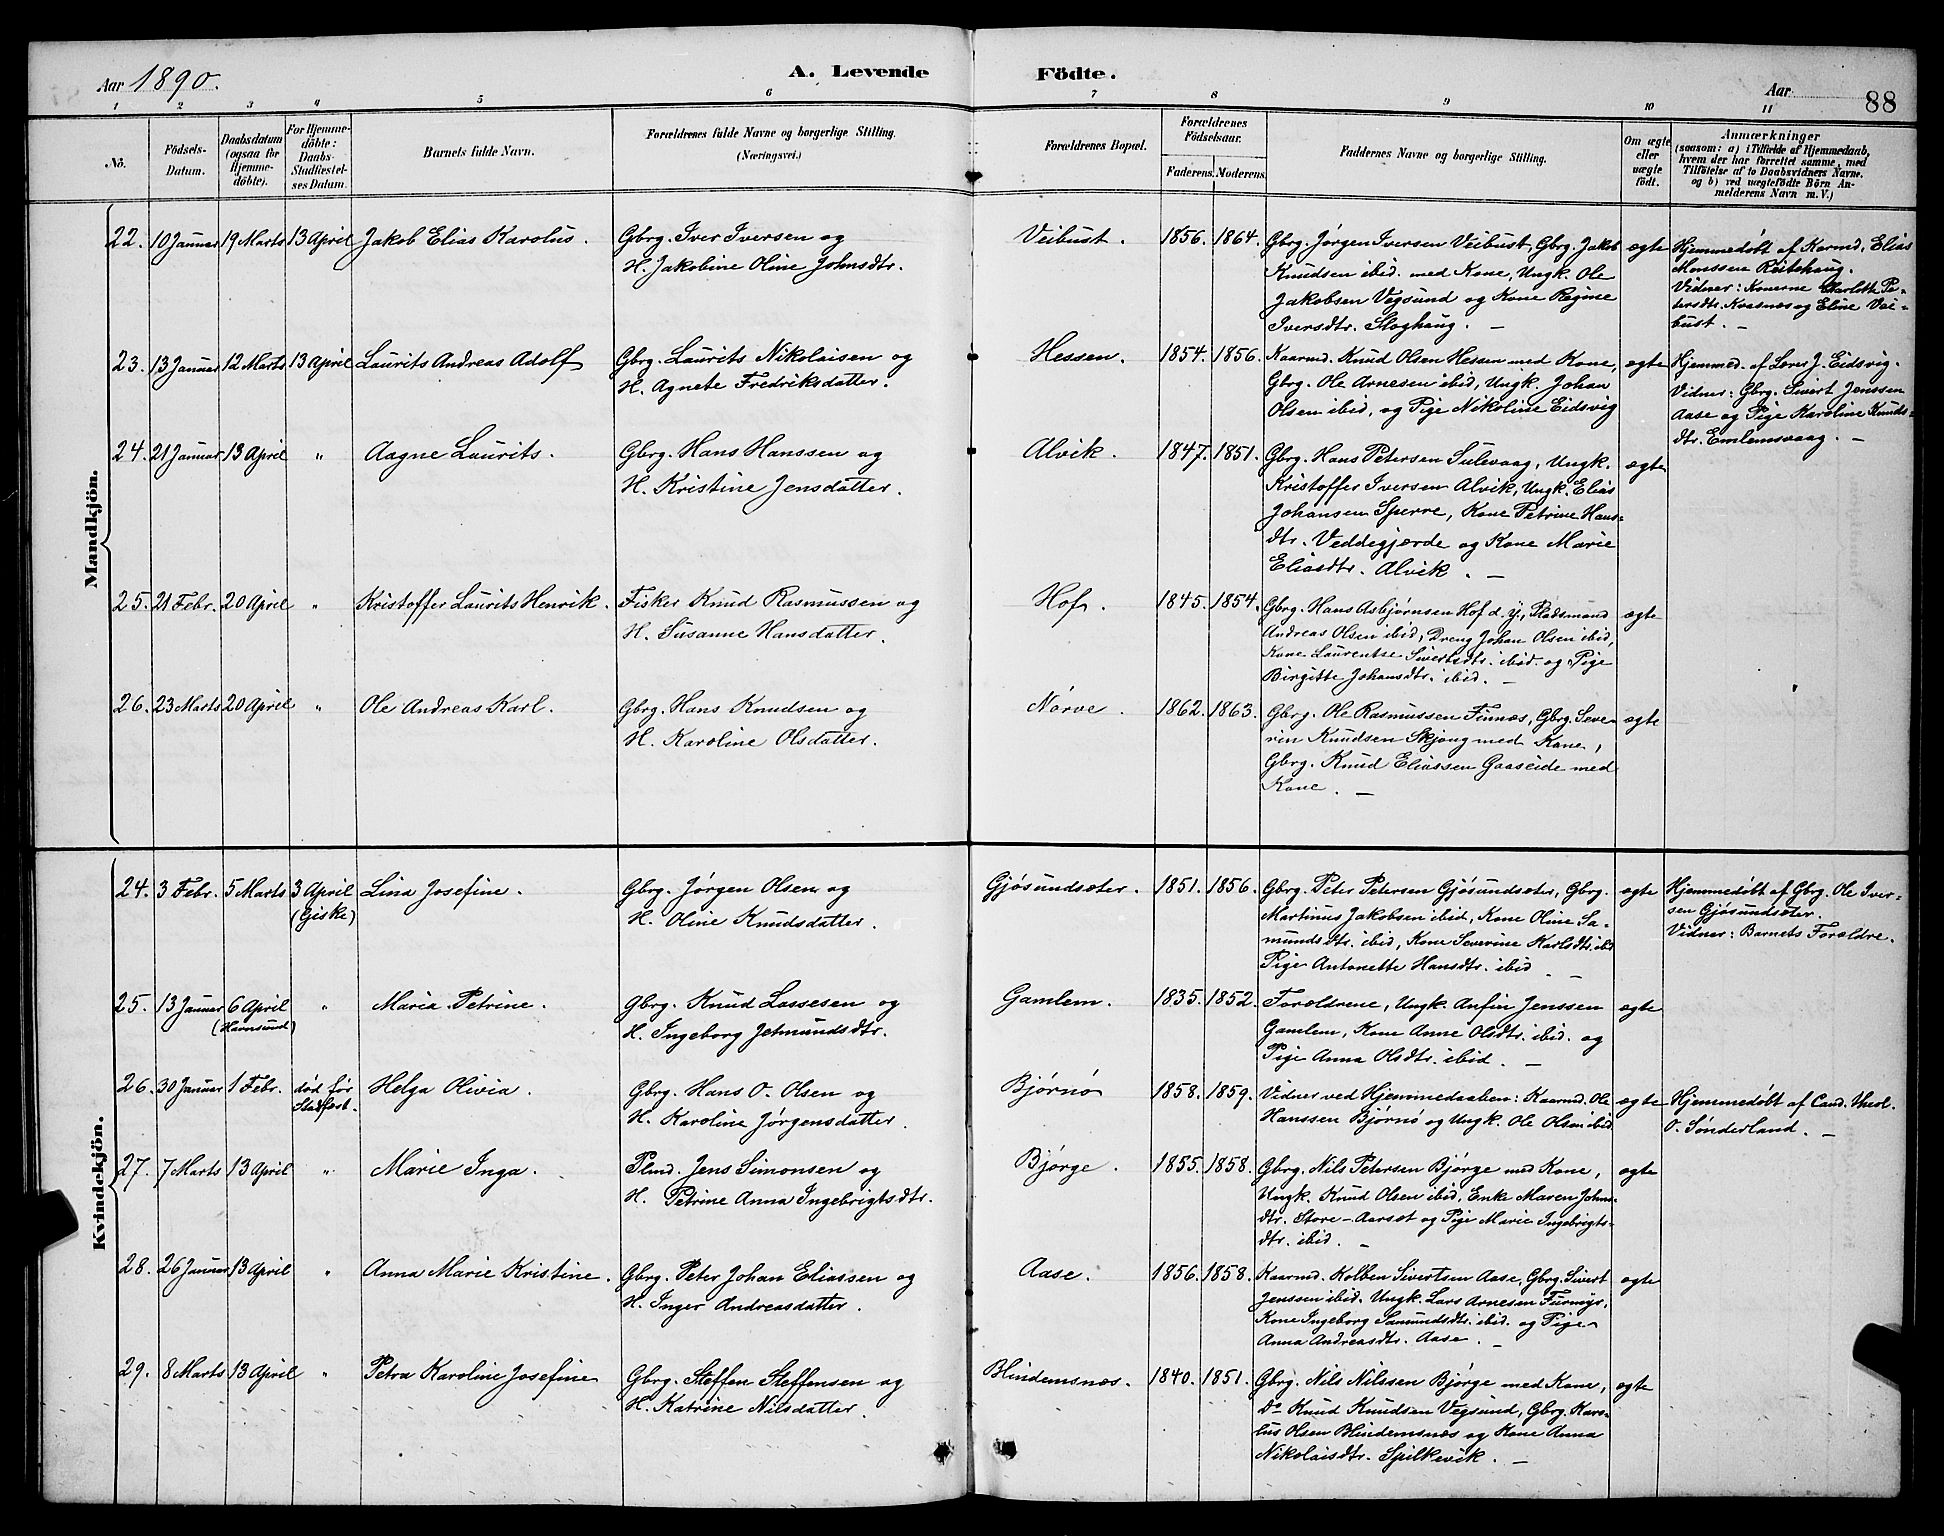 Aar 1890.
A. Levende Födte.
Aar
88
1 2 3 4 5 6 7 8 9 10 11
No.
Födsels-
Datum.
Daabsdatum
(ogsaa for
Hjemme-
döbte).
For Hjemme-
döbte:
Daabs-
Stadfæstel-
ses Datum.
Barnets fulde Navn.
Forældrenes fulde Navne og borgerlige Stilling.
(Næringsvei.)
Forældrenes Bopæl.
Forældrenes
Födselsaar.
Faderens. Moderens.
Faddernes Navne og borgerlige Stilling.
Om ægte
eller
uægte
födt.
Anmærkninger
(saasom: a) i Tilfælde af Hjemmedaab,
hvem der har forrettet samme, med
Tilföielse af to Daabsvidners Navne.
og b) ved uægtefödte Börn An-
melderens Navn m.V.)
Mandkjön.
22. 10 Januar 19 Marts 13 April Jakob Elias Karolus.
Gbrg. Iver Iversen og
H. Jakobine Oline Johnsdtr.
Veibust. 1856. 1864.
Gbrg. Jørgen Iversen Veibust, Gbrg. Jakob
Knudsen ibid. med Kone, Ungk. Ole
Jakobsen Vegsund og Kone Regine
Iversdtr. Sloghaug. —
ægte
Hjemmedøbt af Kormd. Elias
Monssen Reitehaug.
Vidner: Konerne Charlotte Pe-
tersdtr. Kvasnæs og Eline Vei-
bust. —
23. 13 Januar 12 Marts 13 April Laurits Andreas Adolf
Gbrg. Laurits Nikolaisen og
H. Agnete Fredriksdatter.
Hessen. 1854. 1856.
Kaarmd. Knud Olsen Hessen med Kone,
Gbrg. Ole Arnesen ibid, Ungk. Johan
Olsen ibid, og Pige Nikoline Eidsvig
ægte
Hjemmed. af Lærer J. Eidsvig.
Vidner: Gbrg. Sivert Jenssen
Aase og Pige Karoline Knuds-
dtr. Emlemsvaag. —
24. 21 Januar 13 April " Aagne Laurits.
Gbrg. Hans Hanssen og
H. Kristine Jensdatter.
Alvik. 1847. 1851.
Gbrg. Hans Petersen Sulevaag, Ungk.
Kristoffer Iversen Alvik, Ungk. Elias
Johansen Sperre, Kone Petrine Hans-
dtr. Veddegjærde og Kone Marie
Eliasdtr. Alvik. —
ægte
25. 21 Febr. 20 April " Kristoffer Laurits Henrik.
Fisker Knud Rasmussen og
H. Susanne Hansdatter.
Hof. 1845. 1854.
Gbrg. Hans Asbjørnsen Hof d. y., Pladsmand
Andreas Olsen ibid, Dreng Johan Olsen ibid,
Kone Laurentse Sivertsdtr. ibid. og Pige
Birgitte Johansdtr. ibid. —
ægte
26. 23 Marts 20 April " Ole Andreas Karl.
Gbrg. Hans Knudsen og
H. Karoline Olsdatter.
Nørve. 1862. 1863.
Gbrg. Ole Rasmussen Finnæs, Gbrg. Seve-
rin Knudsen Skjong med Kone,
Gbrg. Knud Eliassen Gaaseide med
Kone. —
ægte
Kvindekjön.
24. 3 Febr. 5 Marts 3 April (Giske) Lina Josefine.
Gbrg. Jørgen Olsen og
H. Oline Knudsdatter.
Gjøsundsæter. 1851. 1856.
Gbrg. Peter Petersen Gjøsundsæter, Gbrg.
Martinus Jakobsen ibid, Kone Oline Sa-
mundsdtr. ibid, Kone Severine Karlsdtr. ibid
Pige Antonette Hansdtr. ibid. —
ægte
Hjemmedøbt af Gbrg. Ole Iver-
sen Gjøsundsæter.
Vidner: Barnets Forældre.
25. 13 Januar 6 April (Havnsund) " Maria Petrine.
Gbrg. Knud Lassesen og
H. Ingeborg Jetmundsdtr.
Gamlem. 1835. 1852.
Forældrene, Ungk. Anfin Jenssen
Gamlem, Kone Anne Olsdtr. ibid. og
Pige Anna Olsdtr. ibid. —
ægte
26. 30 Januar 1 Febr. død før Stadfæst. Helga Olivia.
Gbrg. Hans O. Olsen og
H. Karoline Jørgensdatter.
Bjørnø 1858. 1859.
Vidner ved Hjemmedaaben: Kaarmd. Ole
Hanssen Bjørnø og Ungk. Ole Olsen ibid
ægte
Hjemmedøbt af Cand. theol.
O. Sønderland. —
27. 7 Marts 13 April " Marie Inga.
Plmd. Jens Simonsen og
H. Petrine Anna Ingebrigtsdtr.
Bjørge. 1855. 1858.
Gbrg. Nils Petersen Bjørge med Kone,
Ungk. Knud Olsen ibid, Enke Maren Johns-
dtr. Store-Aarset og Pige Marie Ingebrigts-
dtr. ibid. —
ægte
28. 26 Januar 13 April " Anna Marie Kristine.
Gbrg. Peter Johan Eliassen og
H. Inger Andreasdatter.
Aase. 1856. 1858.
Kaarmd. Kolben Sivertsen Aase, Gbrg. Sivert
Jenssen ibid. Ungk. Lars Arnesen Furmyr,
Kone Ingeborg Samundsdtr. ibid. og Pige
Anna Andreasdtr. Aase. —
ægte
29. 8 Marts 13 April " Petra Karoline Josefine
Gbrg. Steffen Steffensen og
H. Katrine Nilsdatter.
Blindemsnæs. 1840. 1851.
Gbrg. Nils Nilssen Bjørge med Kone,
Do Knud Knudsen Vegsund, Gbrg. Karo-
lus Olsen Blindemsnæs og Kone Anna
Nikolaisdtr. Spilkevik. —
ægte